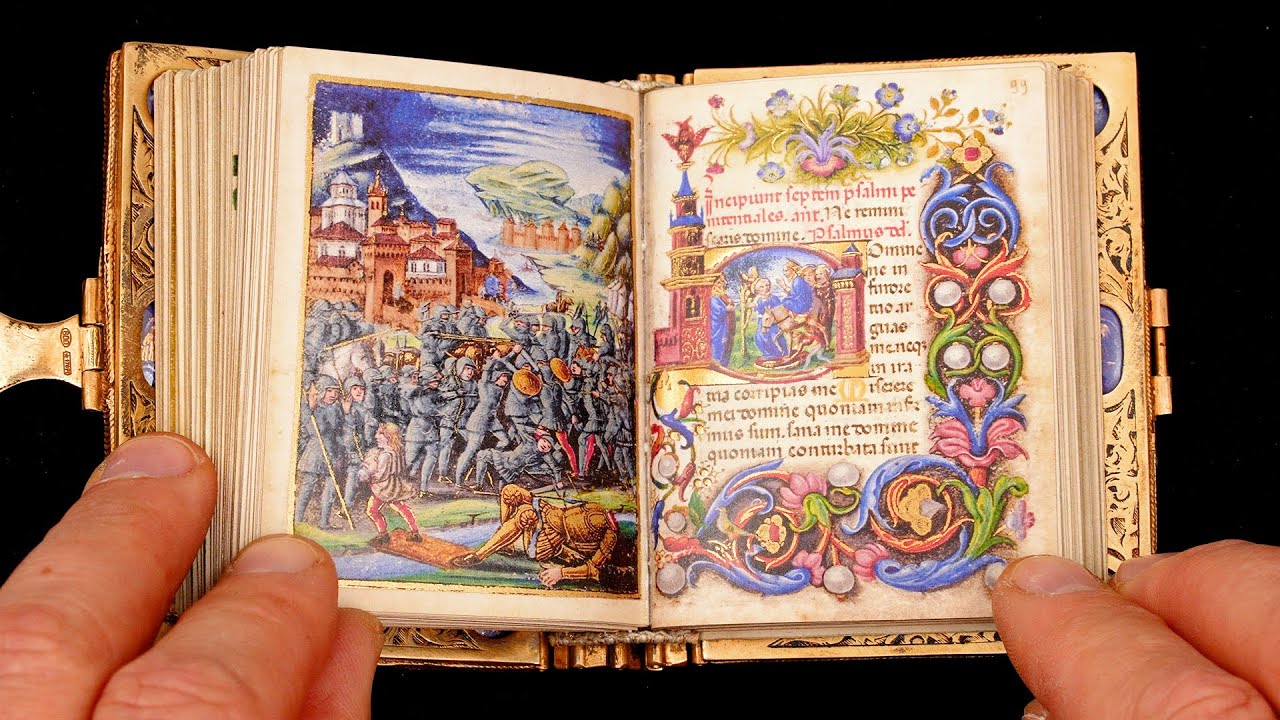 99
Incipiunt septem psalmi pe
nitentiales. ant. Ne remini
scaris domine. Psalmus dd.
Domine
ne in
furore
tuo ar
guas
me neq
in ira
tua corripias me Miserere
mei domine quoniam infir
mus sum. sana me domine
quoniam conturbata sunt